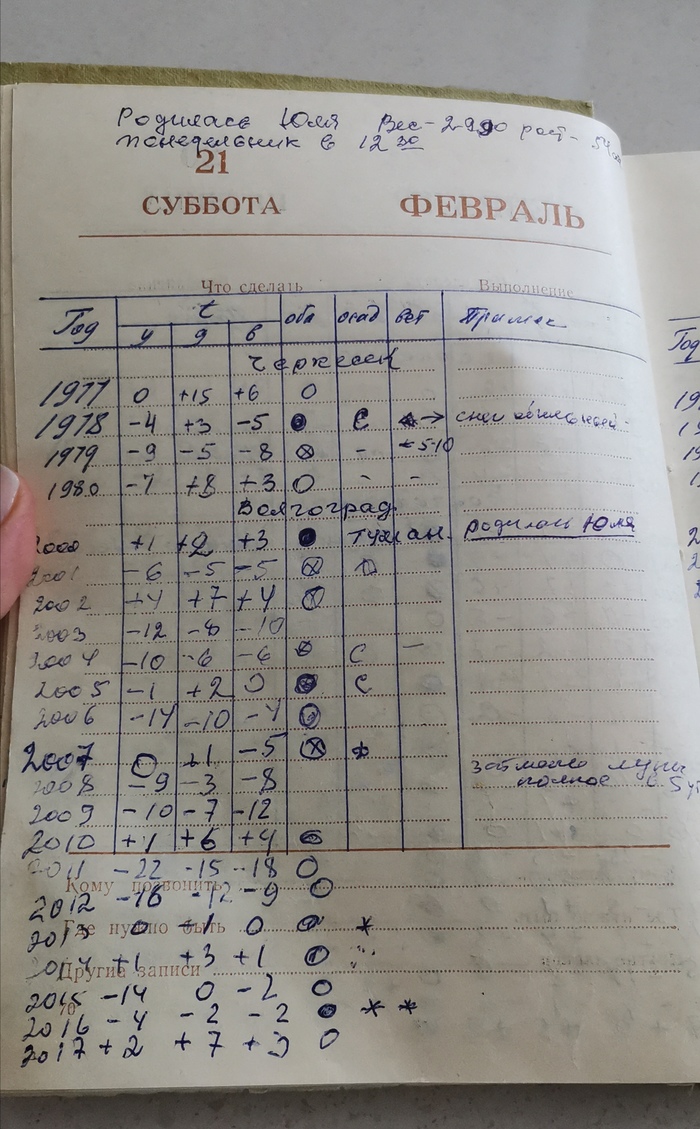 Родилась Юля Вес - 2990 рост - 54
понедельник в 12 30
21
СУББОТА ФЕВРАЛЬ
Что сделать Выполнение
Год t обл осад вет Примеч
у д в
Черкесск
1977 0 +15 +6 0
1978 -4 +3 -5 С → снег
1979 -9 -5 -8 - 5-10
1980 -7 +8 +3 0 - -
Волгоград
2000 +1 +2 +3 туман. родилась Юля
2001 -6 -5 -5
2002 +4 +7 +4
2003 -12 -8 -10
2004 -10 -6 -6 С -
2005 -1 +2 0 С
2006 -14 -10 -7
2007 0 +1 -5 *
затмение луны
2008 -9 -3 -8 полное в 5 ут
2009 -10 -7 -12
2010 +4 +6 +4
2011 -22 -15 -18 0
Кому позвонить
2012 -16 -12 -9 0
Где нужно быть
2013 0 +1 0 *
2014 +1 +3 +1
Другие записи
2015 -14 0 -2 0
70
2016 -4 -2 -2 * *
2017 +2 +7 +3 0
Год